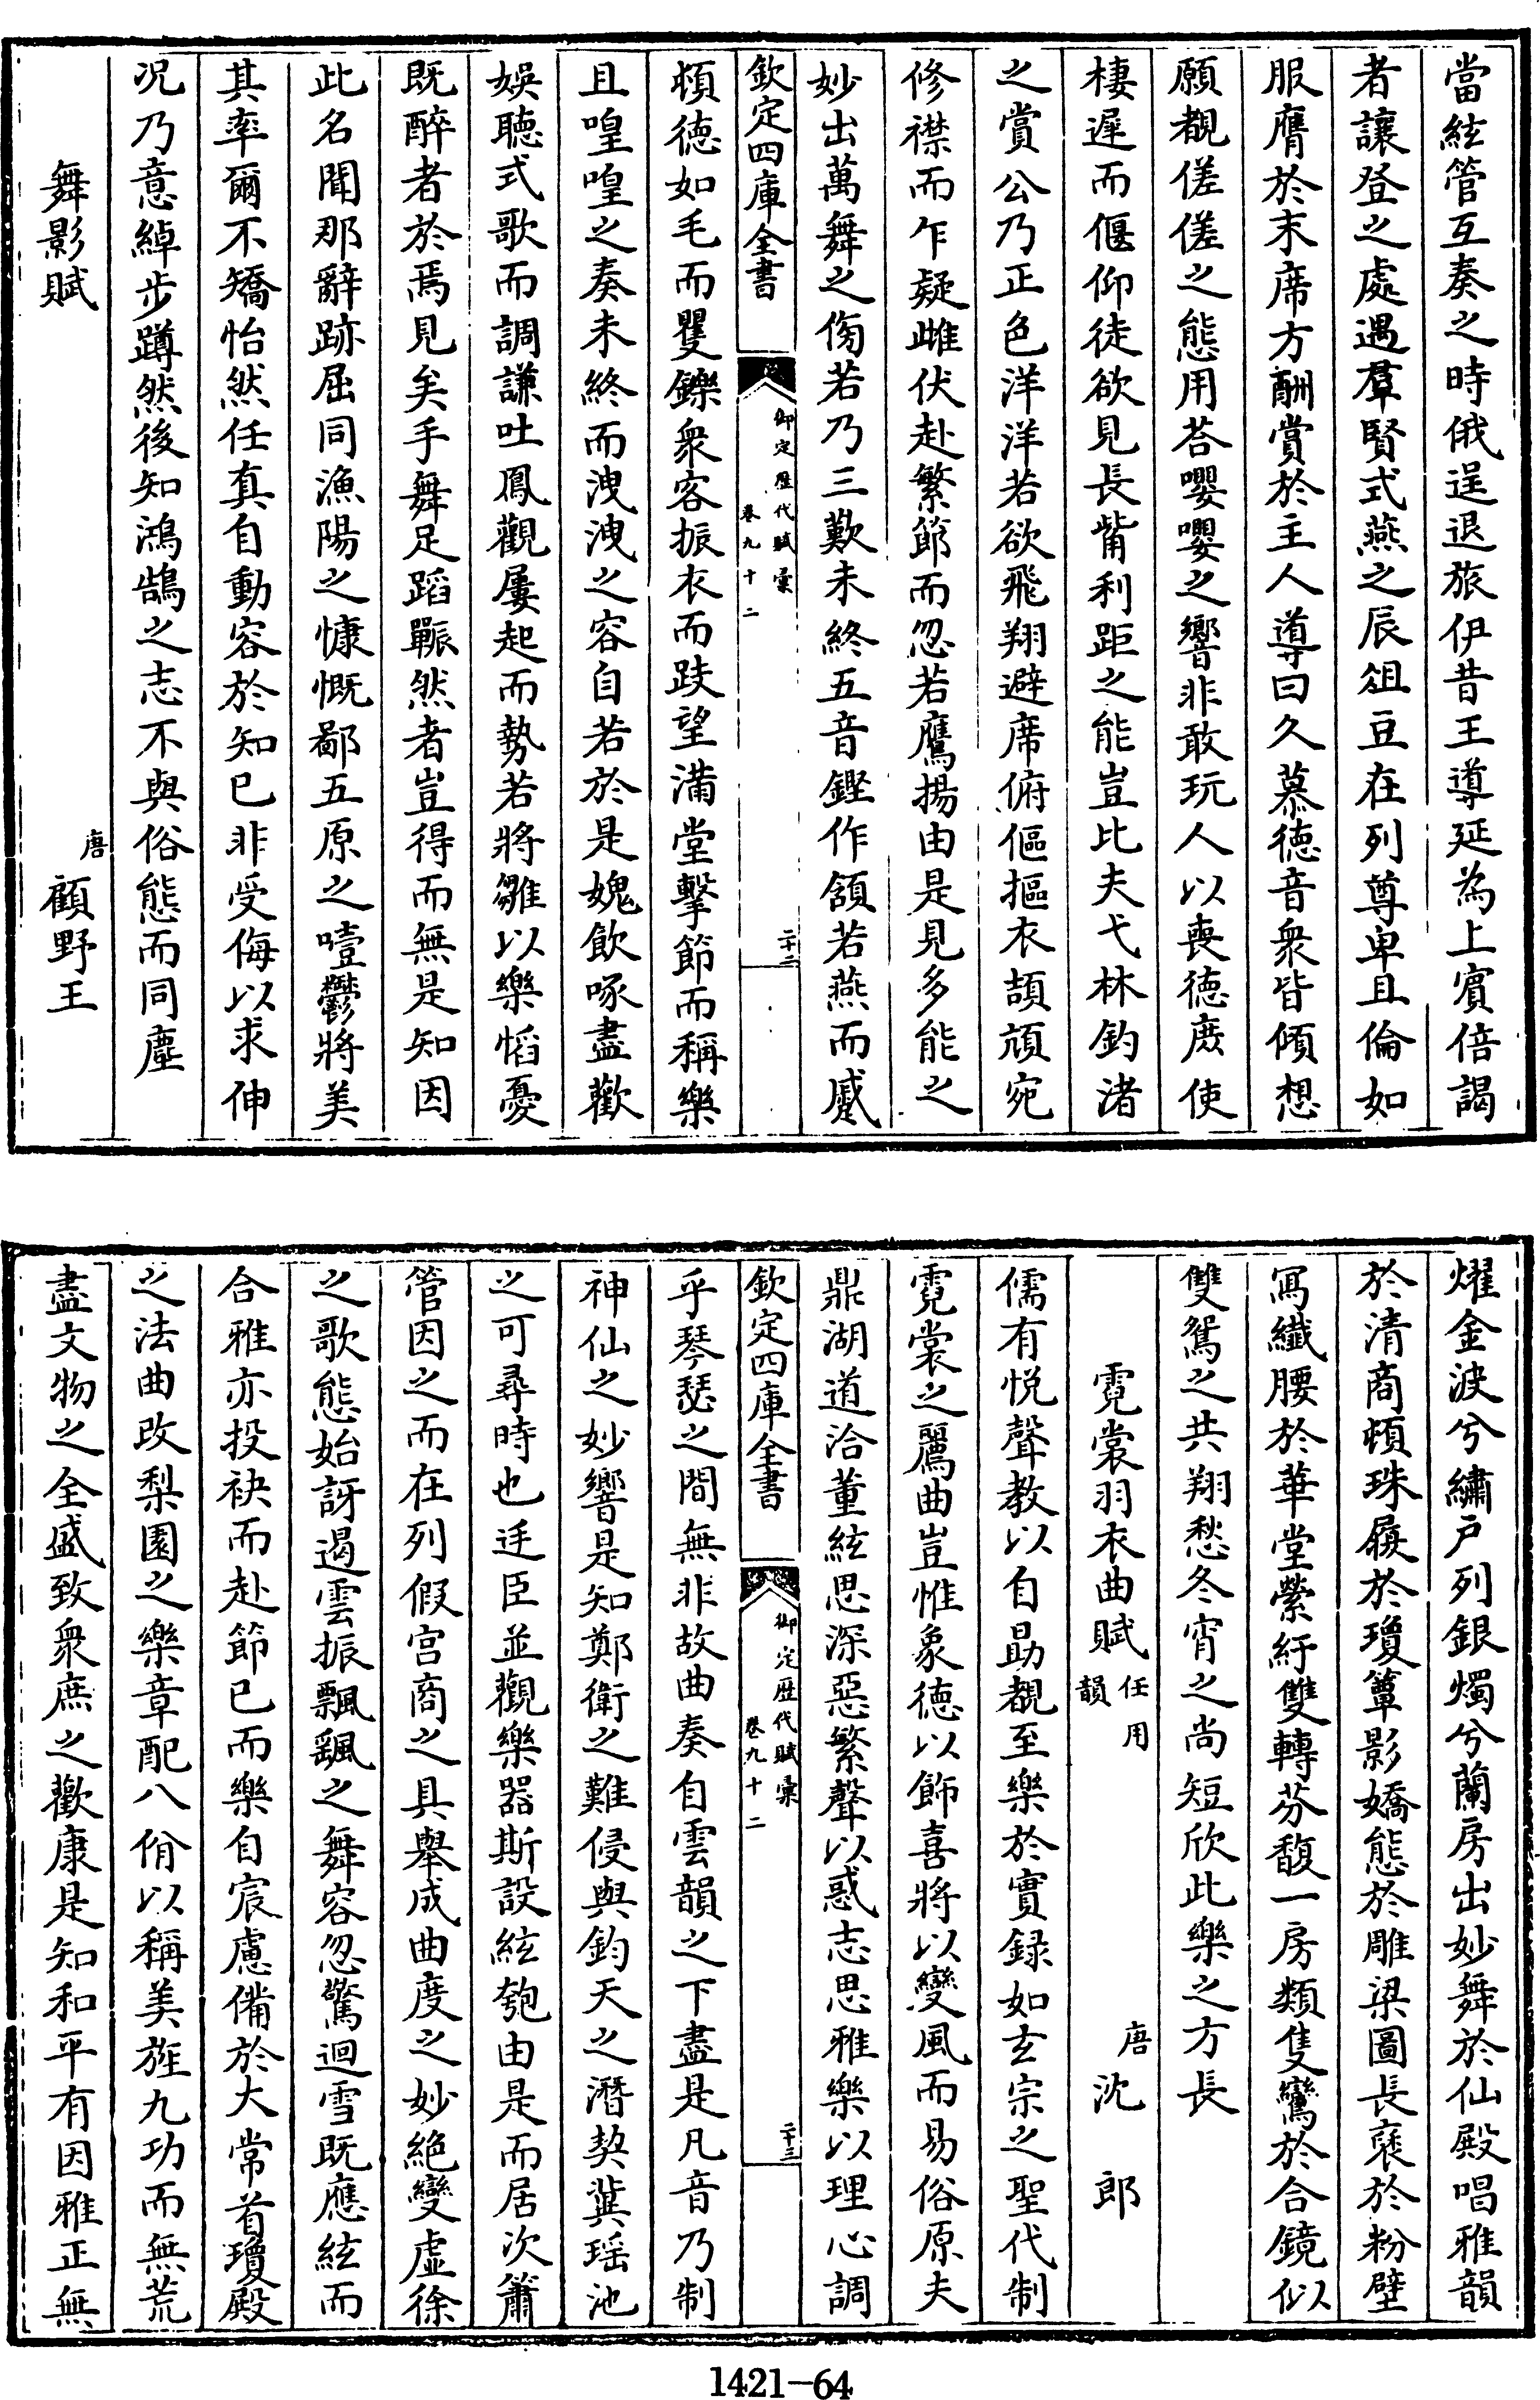 當絃管互奏之時俄逞退旅伊昔王導延為上賔倍謁
者讓登之處遇羣賢式燕之辰俎豆在列尊卑且倫如
服膺於末席方酬賞於主人導曰久慕德音衆皆傾想
願覩傞傞之態用荅嚶嚶之響非敢玩人以喪德庻使
棲遲而偃仰徒欲見長觜利距之能豈比夫弋林釣渚
之賞公乃正色洋洋若欲飛翔避席俯傴摳衣頡頏宛
修襟而乍疑雌伏赴繁節而忽若鷹揚由是見多能之
妙出萬舞之傍若乃三歎未終五音鏗作頷若燕而蹙
欽定四庫全書
御定歴代賦彙
卷九十二
二十二
頓德如毛而矍鑠衆客振衣而跂望滿堂擊節而稱樂
且喤喤之奏未終而洩洩之容自若於是媿飲啄盡歡
娛聴式歌而調謙吐鳳觀屢起而勢若將雛以樂慆憂
既醉者於焉見矣手舞足蹈囅然者豈得而無是知因
此名聞那辭跡屈同漁陽之慷慨鄙五原之噎鬱將美
其率爾不矯怡然任真自動容於知已非受侮以求伸
况乃意綽步蹲然後知鴻鵠之志不與俗態而同塵
舞影賦
唐
顧野王
燿金波兮繡户列銀燭兮蘭房出妙舞於仙殿唱雅韻
於清商頓珠屐於瓊簟影嬌態於雕梁圖長褏於粉壁
寫纎腰於華堂縈紆雙轉芬馥一房類隻鸞於合鏡似
雙鴛之共翔愁冬宵之尚短欣此樂之方長
霓裳羽衣曲賦
任用
韻
唐
沈郎
儒有悦聲教以自勗覩至樂於實録如玄宗之聖代制
霓裳之麗曲豈惟象德以飾喜將以變風而易俗原夫
鼎湖道洽董絃思深惡繁聲以惑志思雅樂以理心調
欽定四庫全書
御定歴代賦彙
卷九十二
二十三
乎琴瑟之間無非故曲奏自雲韻之下盡是凡音乃制
神仙之妙響是知鄭衛之難侵與鈞天之潛契冀瑶池
之可尋時也廷臣並觀樂器斯設絃匏由是而居次簫
管因之而在列假宫商之具舉成曲度之妙絶變虚徐
之歌態始訝遏雲振飄颻之舞容忽驚迴雪既應絃而
合雅亦投袂而赴節已而樂自宸慮備於大常首瓊殿
之法曲改梨園之樂章配八佾以稱美旌九功而無荒
盡文物之全盛致衆庶之歡康是知和平有因雅正無
1421-64